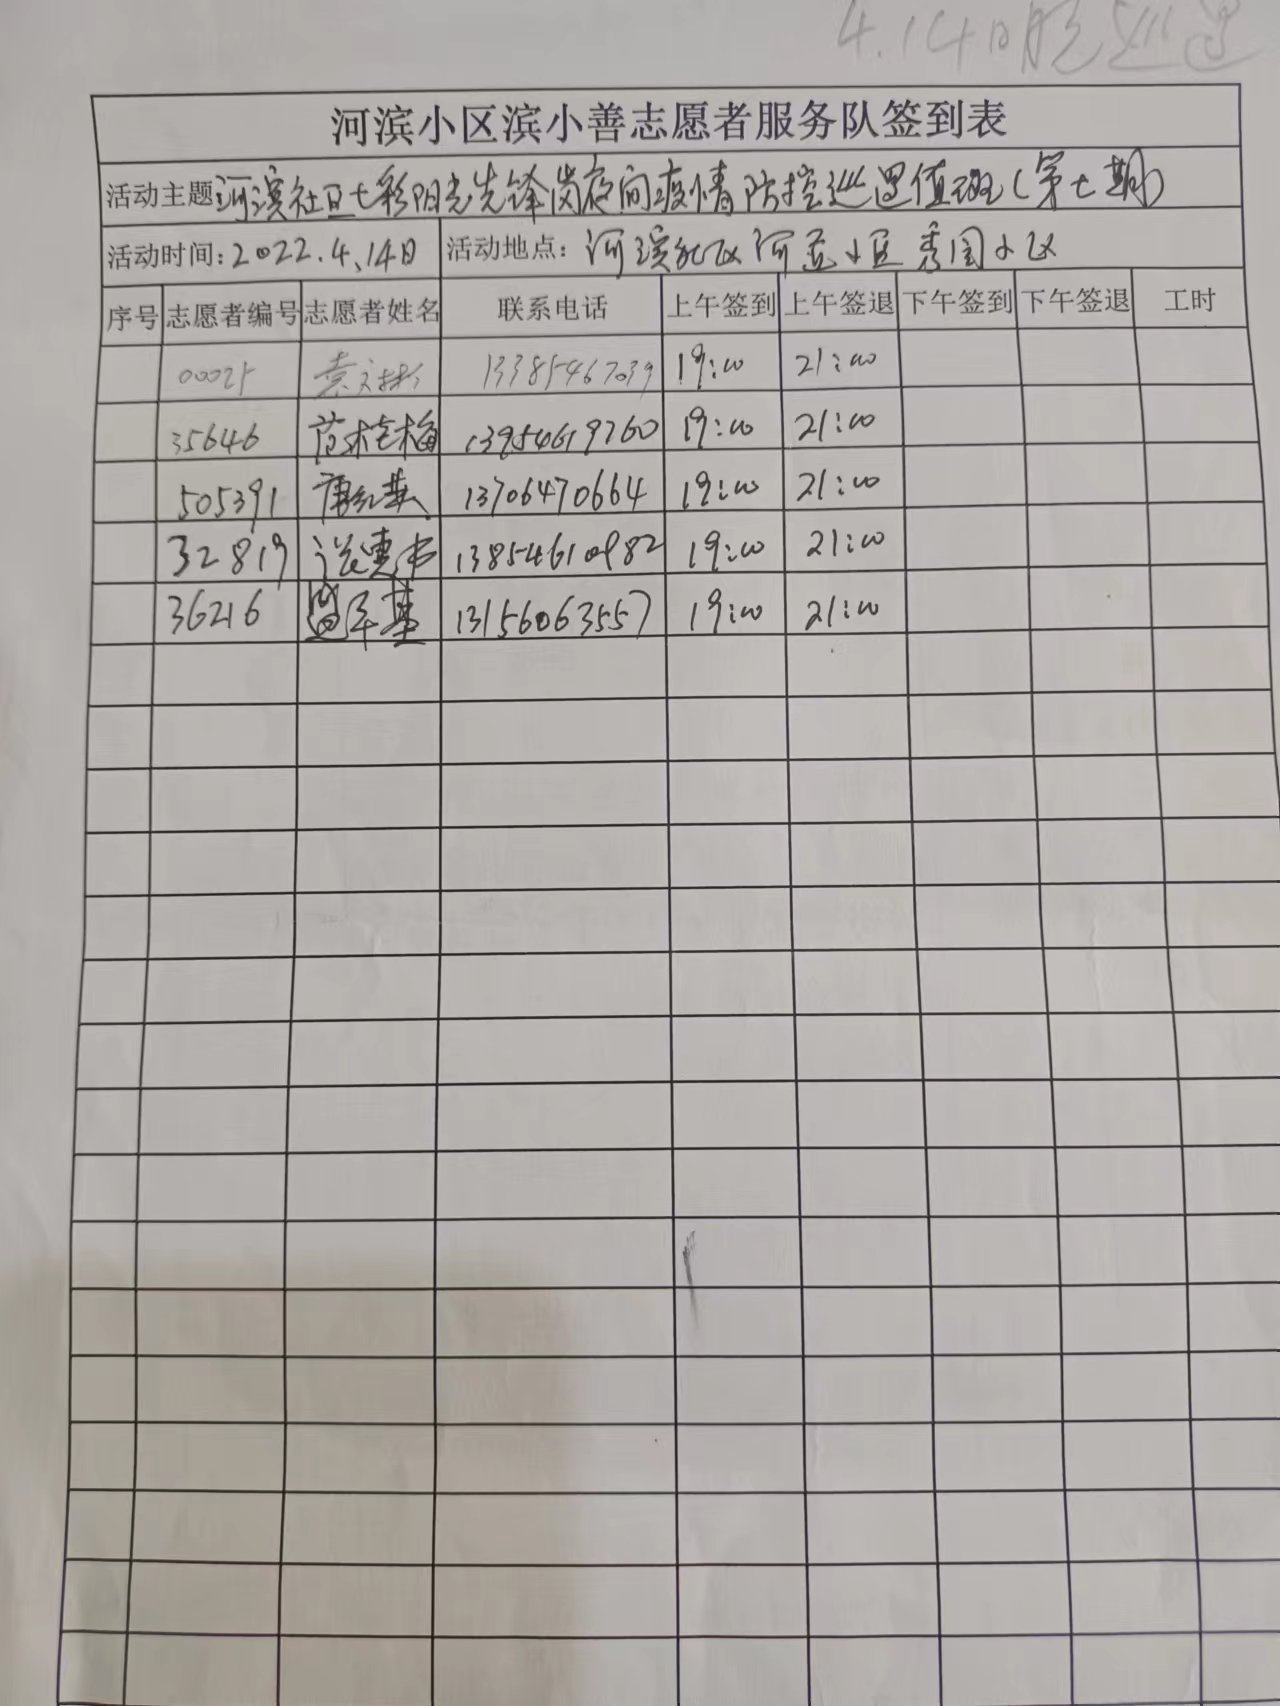 4.14日晚巡逻
河滨小区滨小善志愿者服务队签到表
活动主题 河滨社区七彩阳光先锋岗夜间疫情防控巡逻值班(第七期)
活动时间:2022.4.14日 活动地点: 河滨社区河 小区秀园小区
序号 志愿者编号 志愿者姓名 联系电话 上午签到 上午签退 下午签到 下午签退 工时
13385467039 19:00 21:00
35646 范桂梅 13954619760 19:00 21:00
505391 唐红英 13706470664 19:00 21:00
32819 13854610982 19:00 21:00
36216 13156063557 19:00 21:00